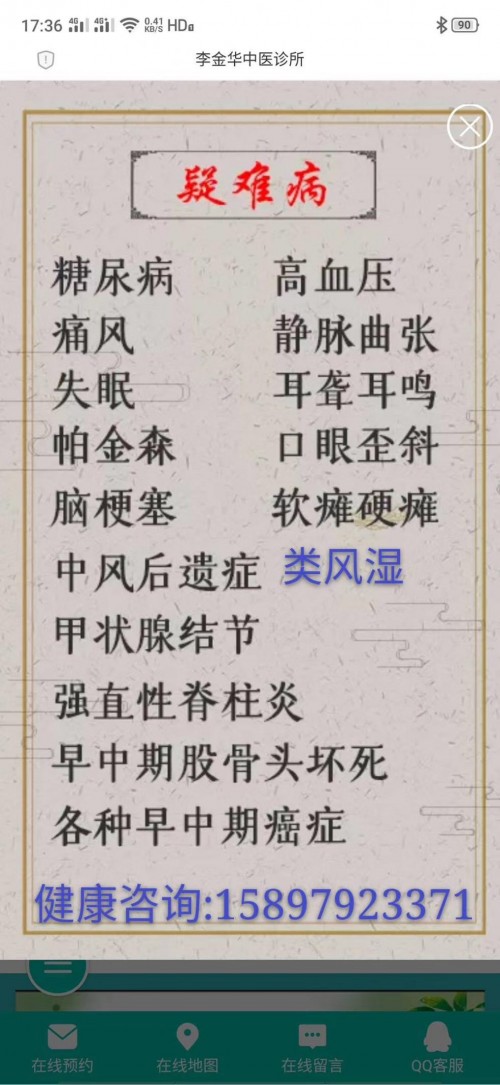 17:36 4G 4G 0.41 KB/S HD 90
李金华中医诊所
疑难病
糖尿病 高血压
痛风 静脉曲张
失眠 耳聋耳鸣
帕金森 口眼歪斜
脑梗塞 软瘫硬瘫
中风后遗症 类风湿
甲状腺结节
强直性脊柱炎
早中期股骨头坏死
各种早中期癌症
健康咨询:15897923371
在线预约 在线地图 在线留言 QQ客服